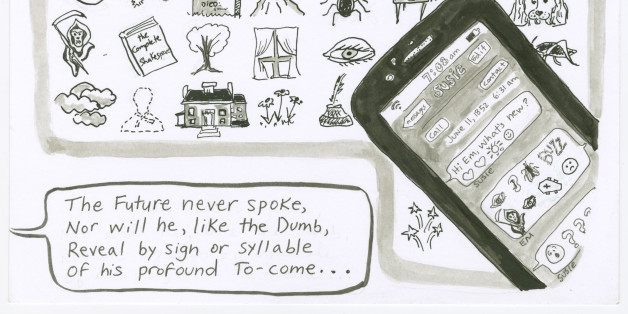 DIED
The
Complete
Shakespeare
7:08 am
messages
SUSIE
edit
call
contact
June 11, 1852 6:31 am
Hi Em, what's new?
SUSIE
BUZZ
EM
? ? ?
SUSIE
The Future never spoke,
Nor will he, like the Dumb,
Reveal by sign or syllable
Of his profound To-come...